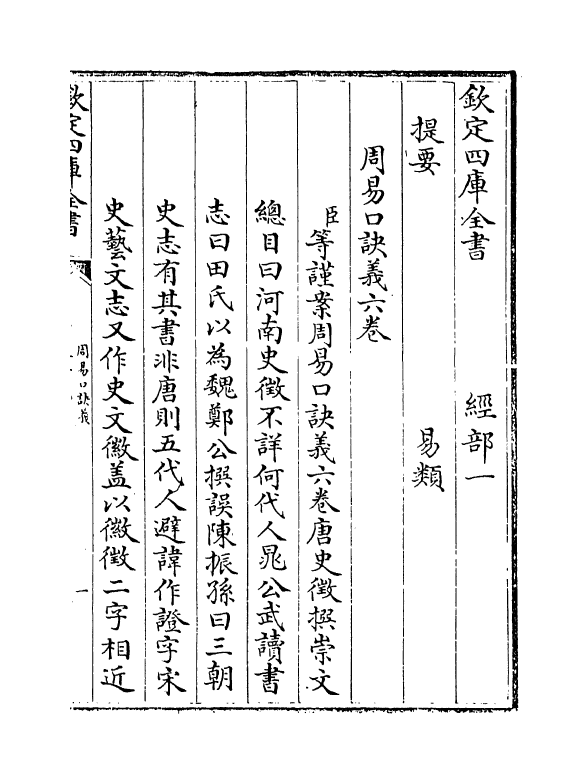 欽定四庫全書　經部一
提要　易類
周易口訣義六卷
臣等謹案周易口訣義六卷唐史徴撰崇文
總目曰河南史徴不詳何代人晁公武讀書
志曰田氏以為魏鄭公撰誤陳振孫曰三朝
史志有其書非唐則五代人避諱作證字宋
史藝文志又作史文徽盖以徽徴二字相近
欽定四庫全書
周易口訣義
一